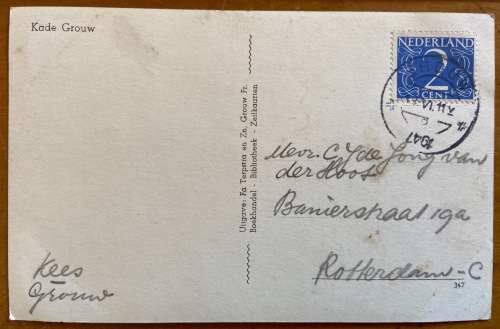 Kade Grouw
NEDERLAND
2
CENT
1947
Uitgave: Fa Terpstra en Zn. Grouw Fr.
Boekhandel - Bibliotheek - Zeilkaarten
Mevr. C. Y de Jong van
der Hoos
Banierstraat 19a
Rotterdam-C
Kees
Grouw
347